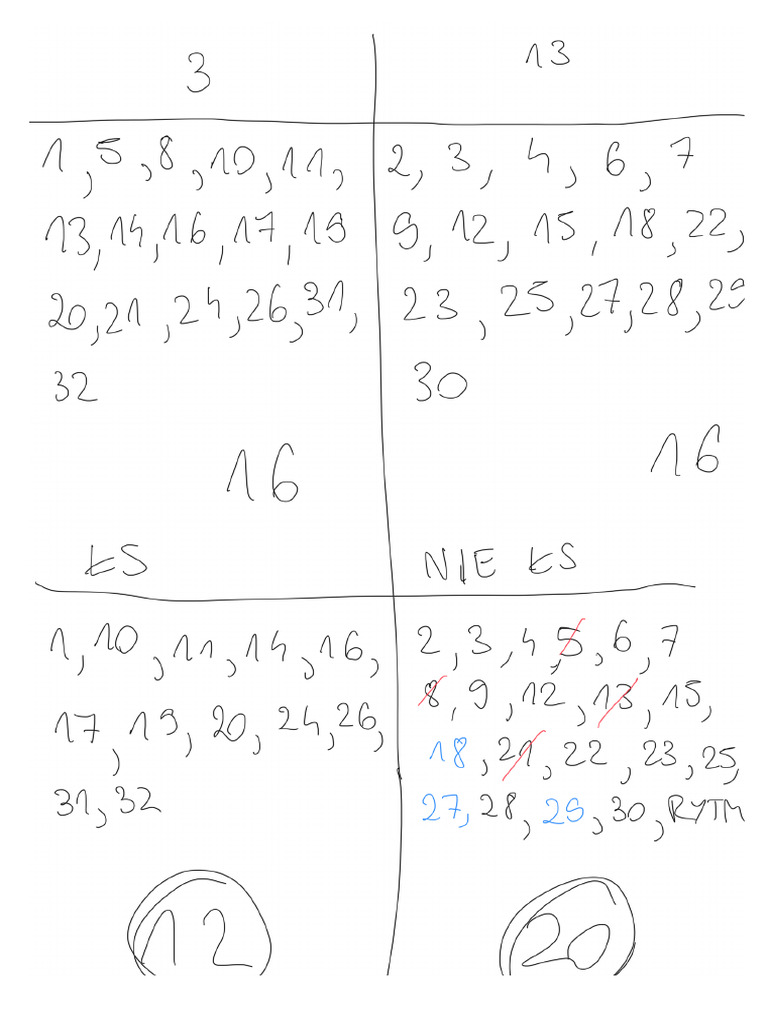 3
13
1, 5, 8, 10, 11,
13, 14, 16, 17, 19
20, 21, 24, 26, 31,
32
16
2, 3, 4, 6, 7
9, 12, 15, 18, 22,
23, 25, 27, 28, 29
30
16
ŁS
1, 10, 11, 14, 16,
17, 19, 20, 24, 26,
31, 32
12
NIE ŁS
2, 3, 4, 5, 6, 7
8, 9, 12, 13, 15,
18, 21, 22, 23, 25,
27, 28, 29, 30, RYTM
20